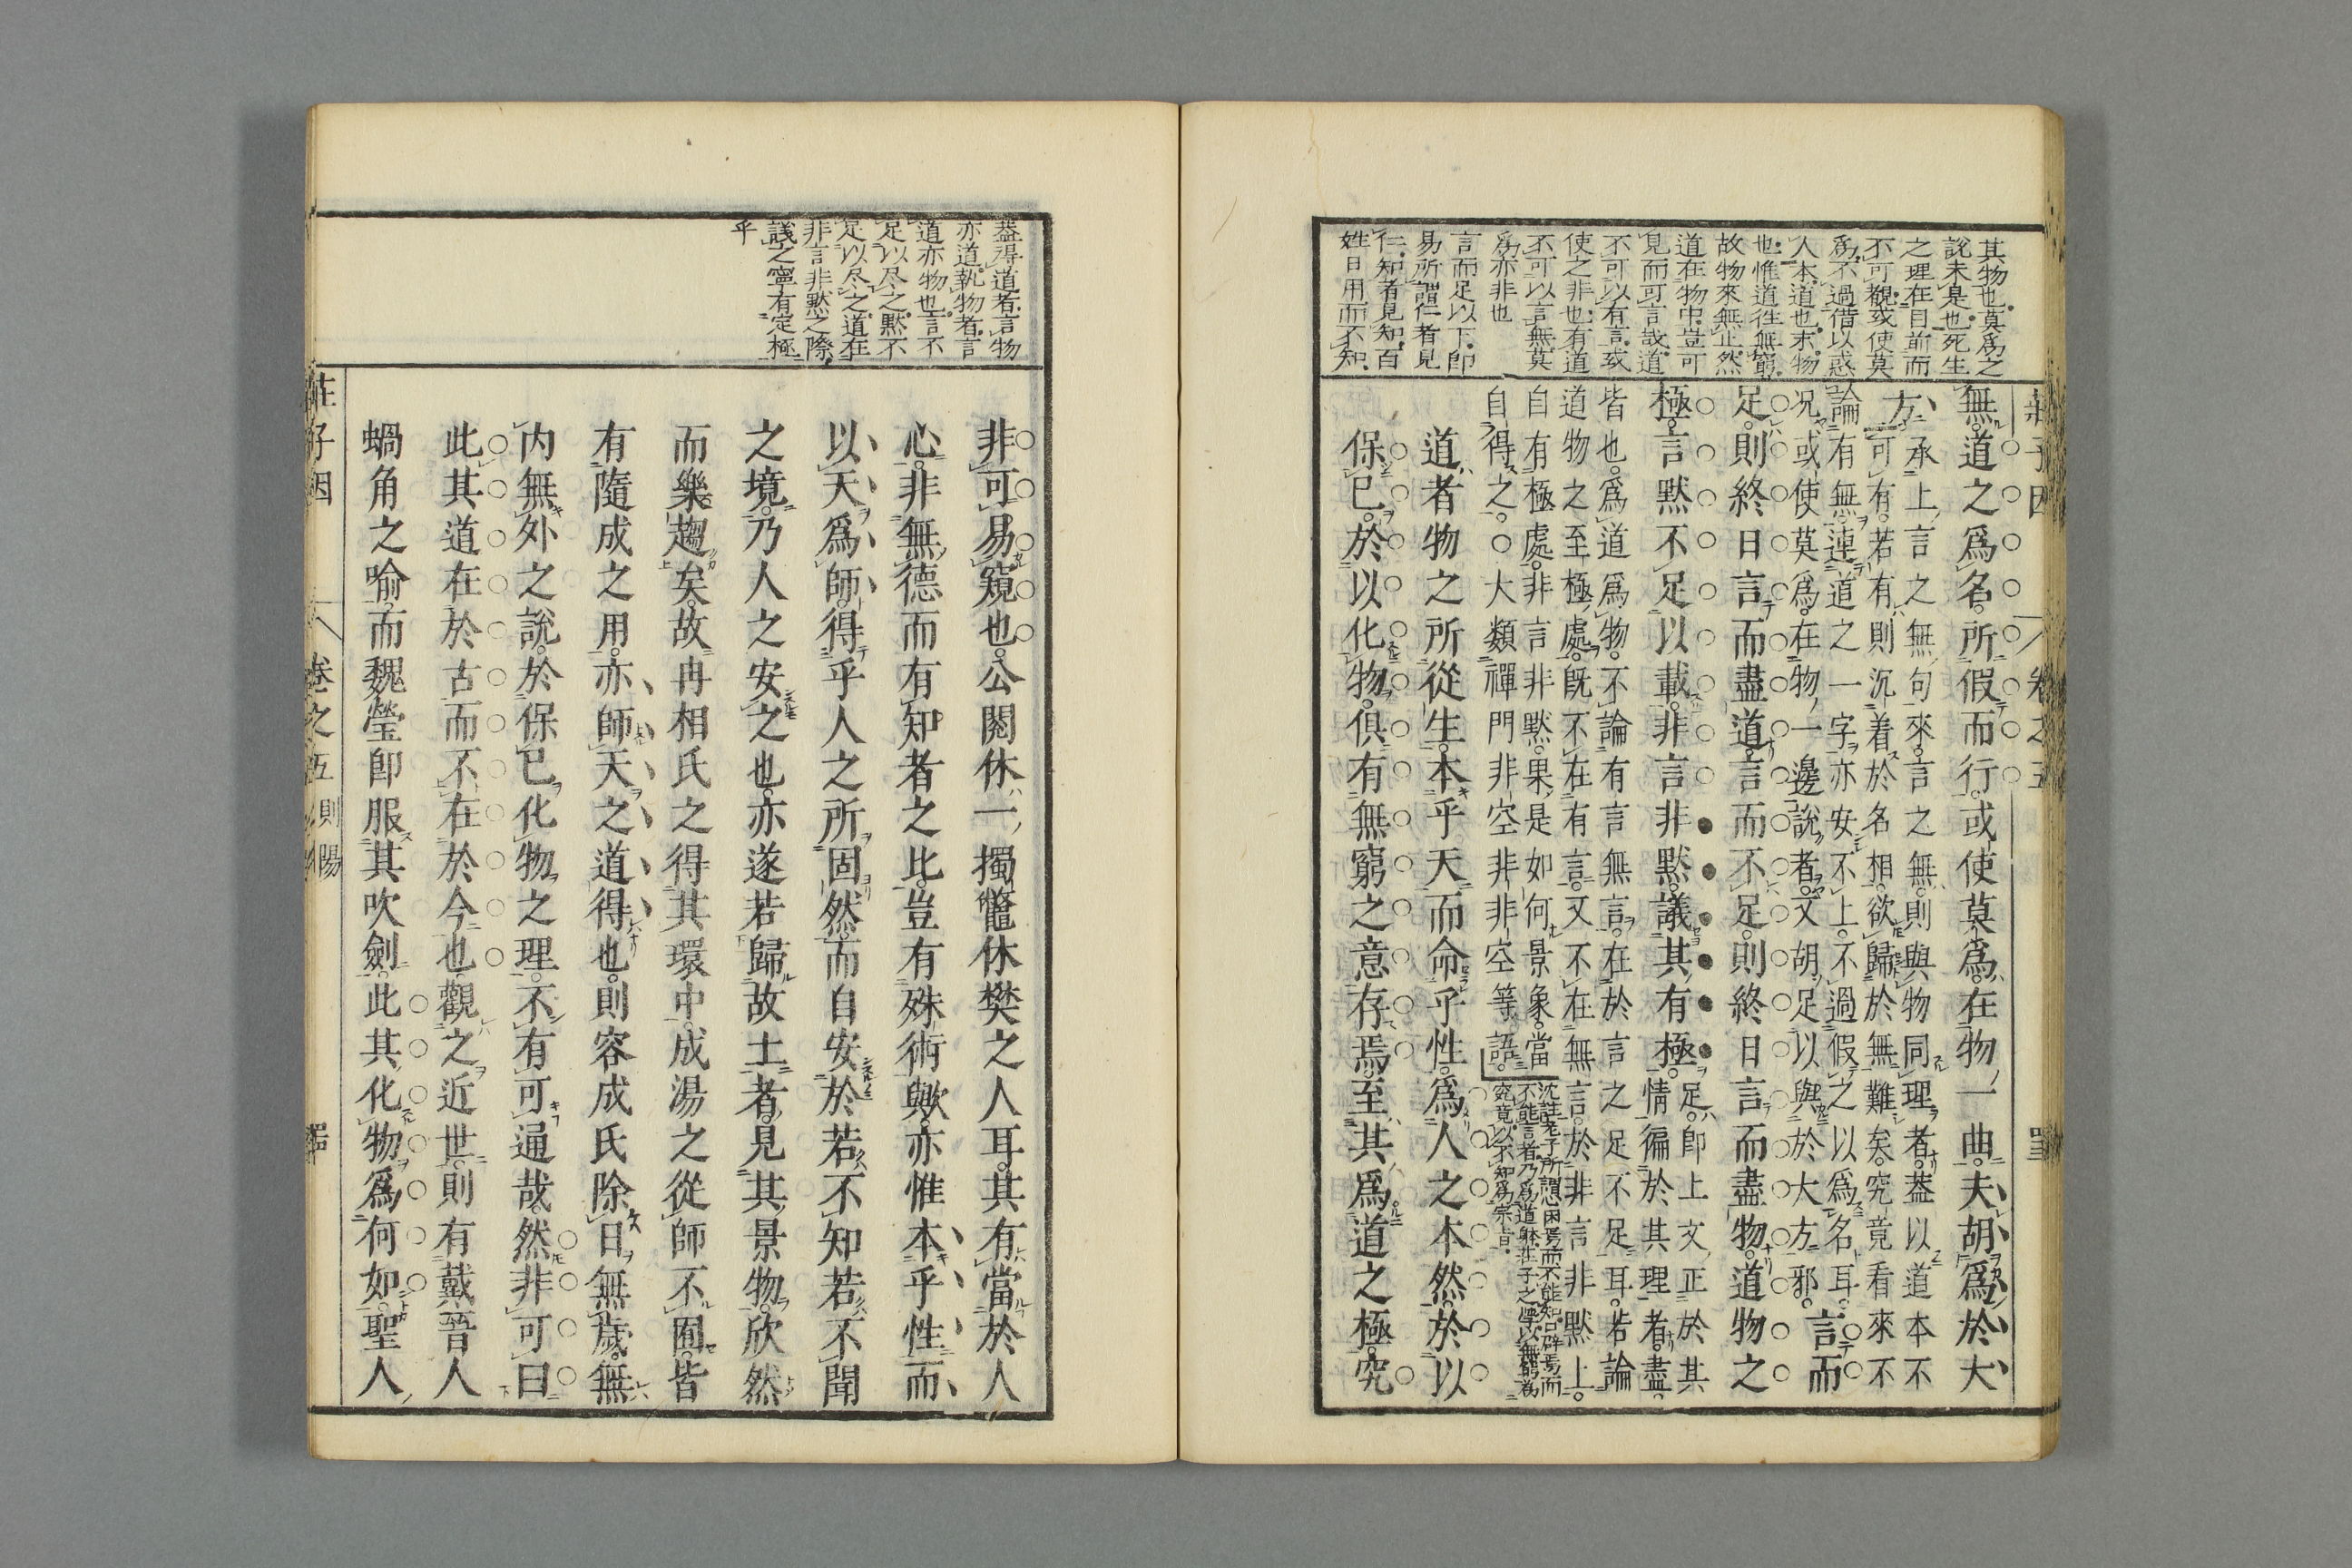 其物也莫爲之
說未是也死生
之理在目前而
不可觀或使莫
爲不過借以惑
人本道也末物
也惟道往無窮
故物來無止然
道在物中豈可
見而可言哉道
不可以有言或
使之非也有道
不可以言無莫
爲亦非也
言而足以下即
易所謂仁者見
仁知者見知百
姓日用而不知
無道之爲名所假而行或使莫爲在物一曲夫胡爲於大
方承上言之無句來言之無則與物同理者葢以道本不
可有若有則沉着於名相欲歸於無難矣究竟看來不
論有無連道之一字亦安不上不過假之以爲名耳言而
况或使莫爲在物一邊說者又胡足以與於大方邪
足則終日言而盡道言而不足則終日言而盡物道物之
極言默不足以載非言非默議其有極足即上文正於其
情徧於其理者盡
皆也爲道爲物不論有言無言在於言之足不足耳若論
道物之至極處既不在有言又不在無言於非言非默上
自有極處非言非默果是如何景象當
自得之○大類禪門非空非非空等語
沈註老子所謂心困焉而不能知口辟焉而
不能言者乃爲道躰莊子之學以無窮爲
究竟以不知爲宗旨
道者物之所從生本乎天而命乎性爲人之本然於以
保已於以化物俱有無窮之意存焉至其爲道之極究
葢得道者言物
亦道執物者言
道亦物也言不
足以尽之默不
足以尽之道在
非言非默之際
議之寧有定極
乎
非可易窺也公閱休一擉鼈休樊之人耳其有當於人
心非無德而有知者之比豈有殊術歟亦惟本乎性而
以天爲師得乎人之所固然而自安於若不知若不聞
之境乃人之安之也亦遂若歸故土者見其景物欣然
而樂趨矣故冉相氏之得其環中成湯之從師不囿皆
有隨成之用亦師天之道得也則容成氏除日無歲無
内無外之說於保已化物之理不有可通哉然非可曰
此其道在於古而不在於今也觀之近世則有戴晉人
蝸角之喩而魏瑩卽服其吹劍此其化物爲何如聖人
莊子因 卷之五 則陽